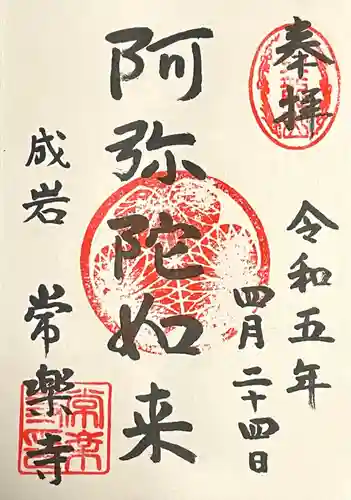 奉拝
令和五年
四月二十四日
阿弥陀如来
成岩
常楽寺